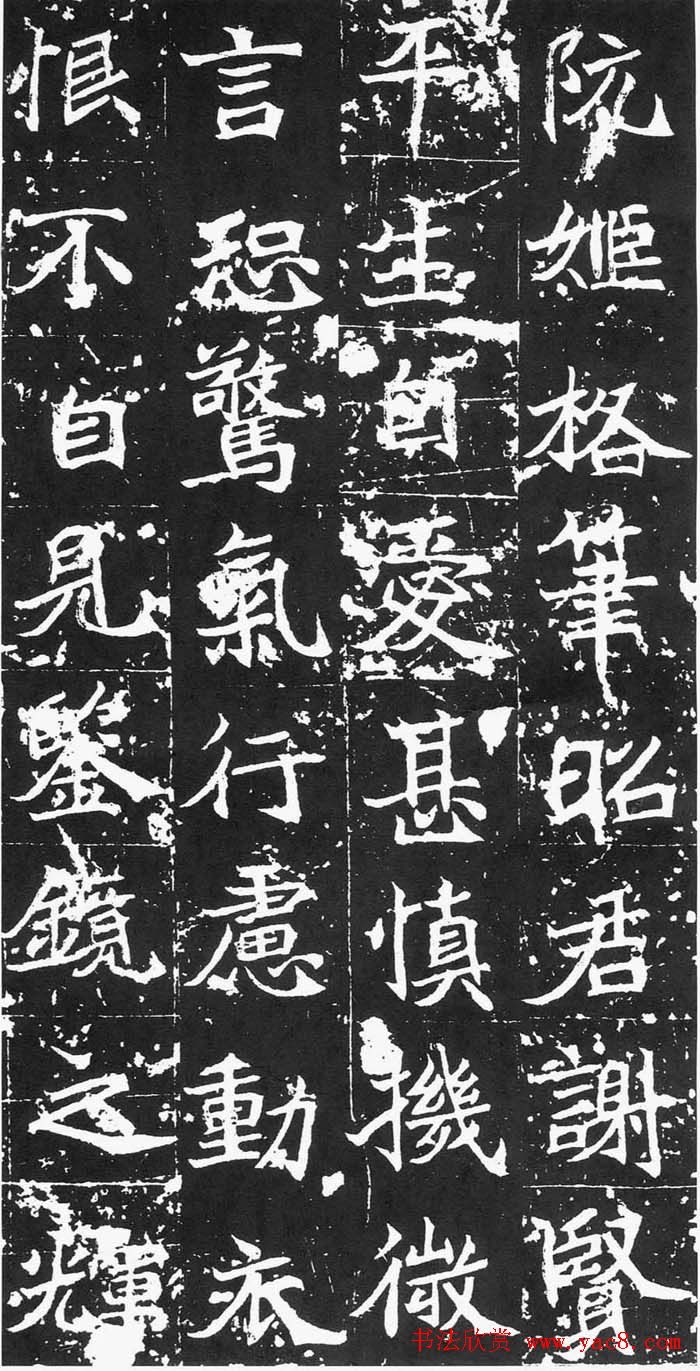 阮姬格筆昭君謝賢
平生自憂甚慎機微
言恐驚氣行慮動衣
恨不自見鑒鏡之輝
书法欣赏 www.yac8.com